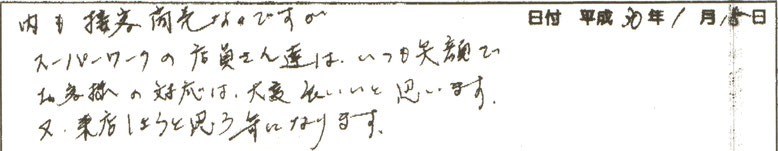 内も接客商売なのですが
日付 平成30年1月15日
スーパーワークの店員さん達は、いつも笑顔で
お客様への対応は、大変良いいと思います。
又、来店しようと思う気になります。